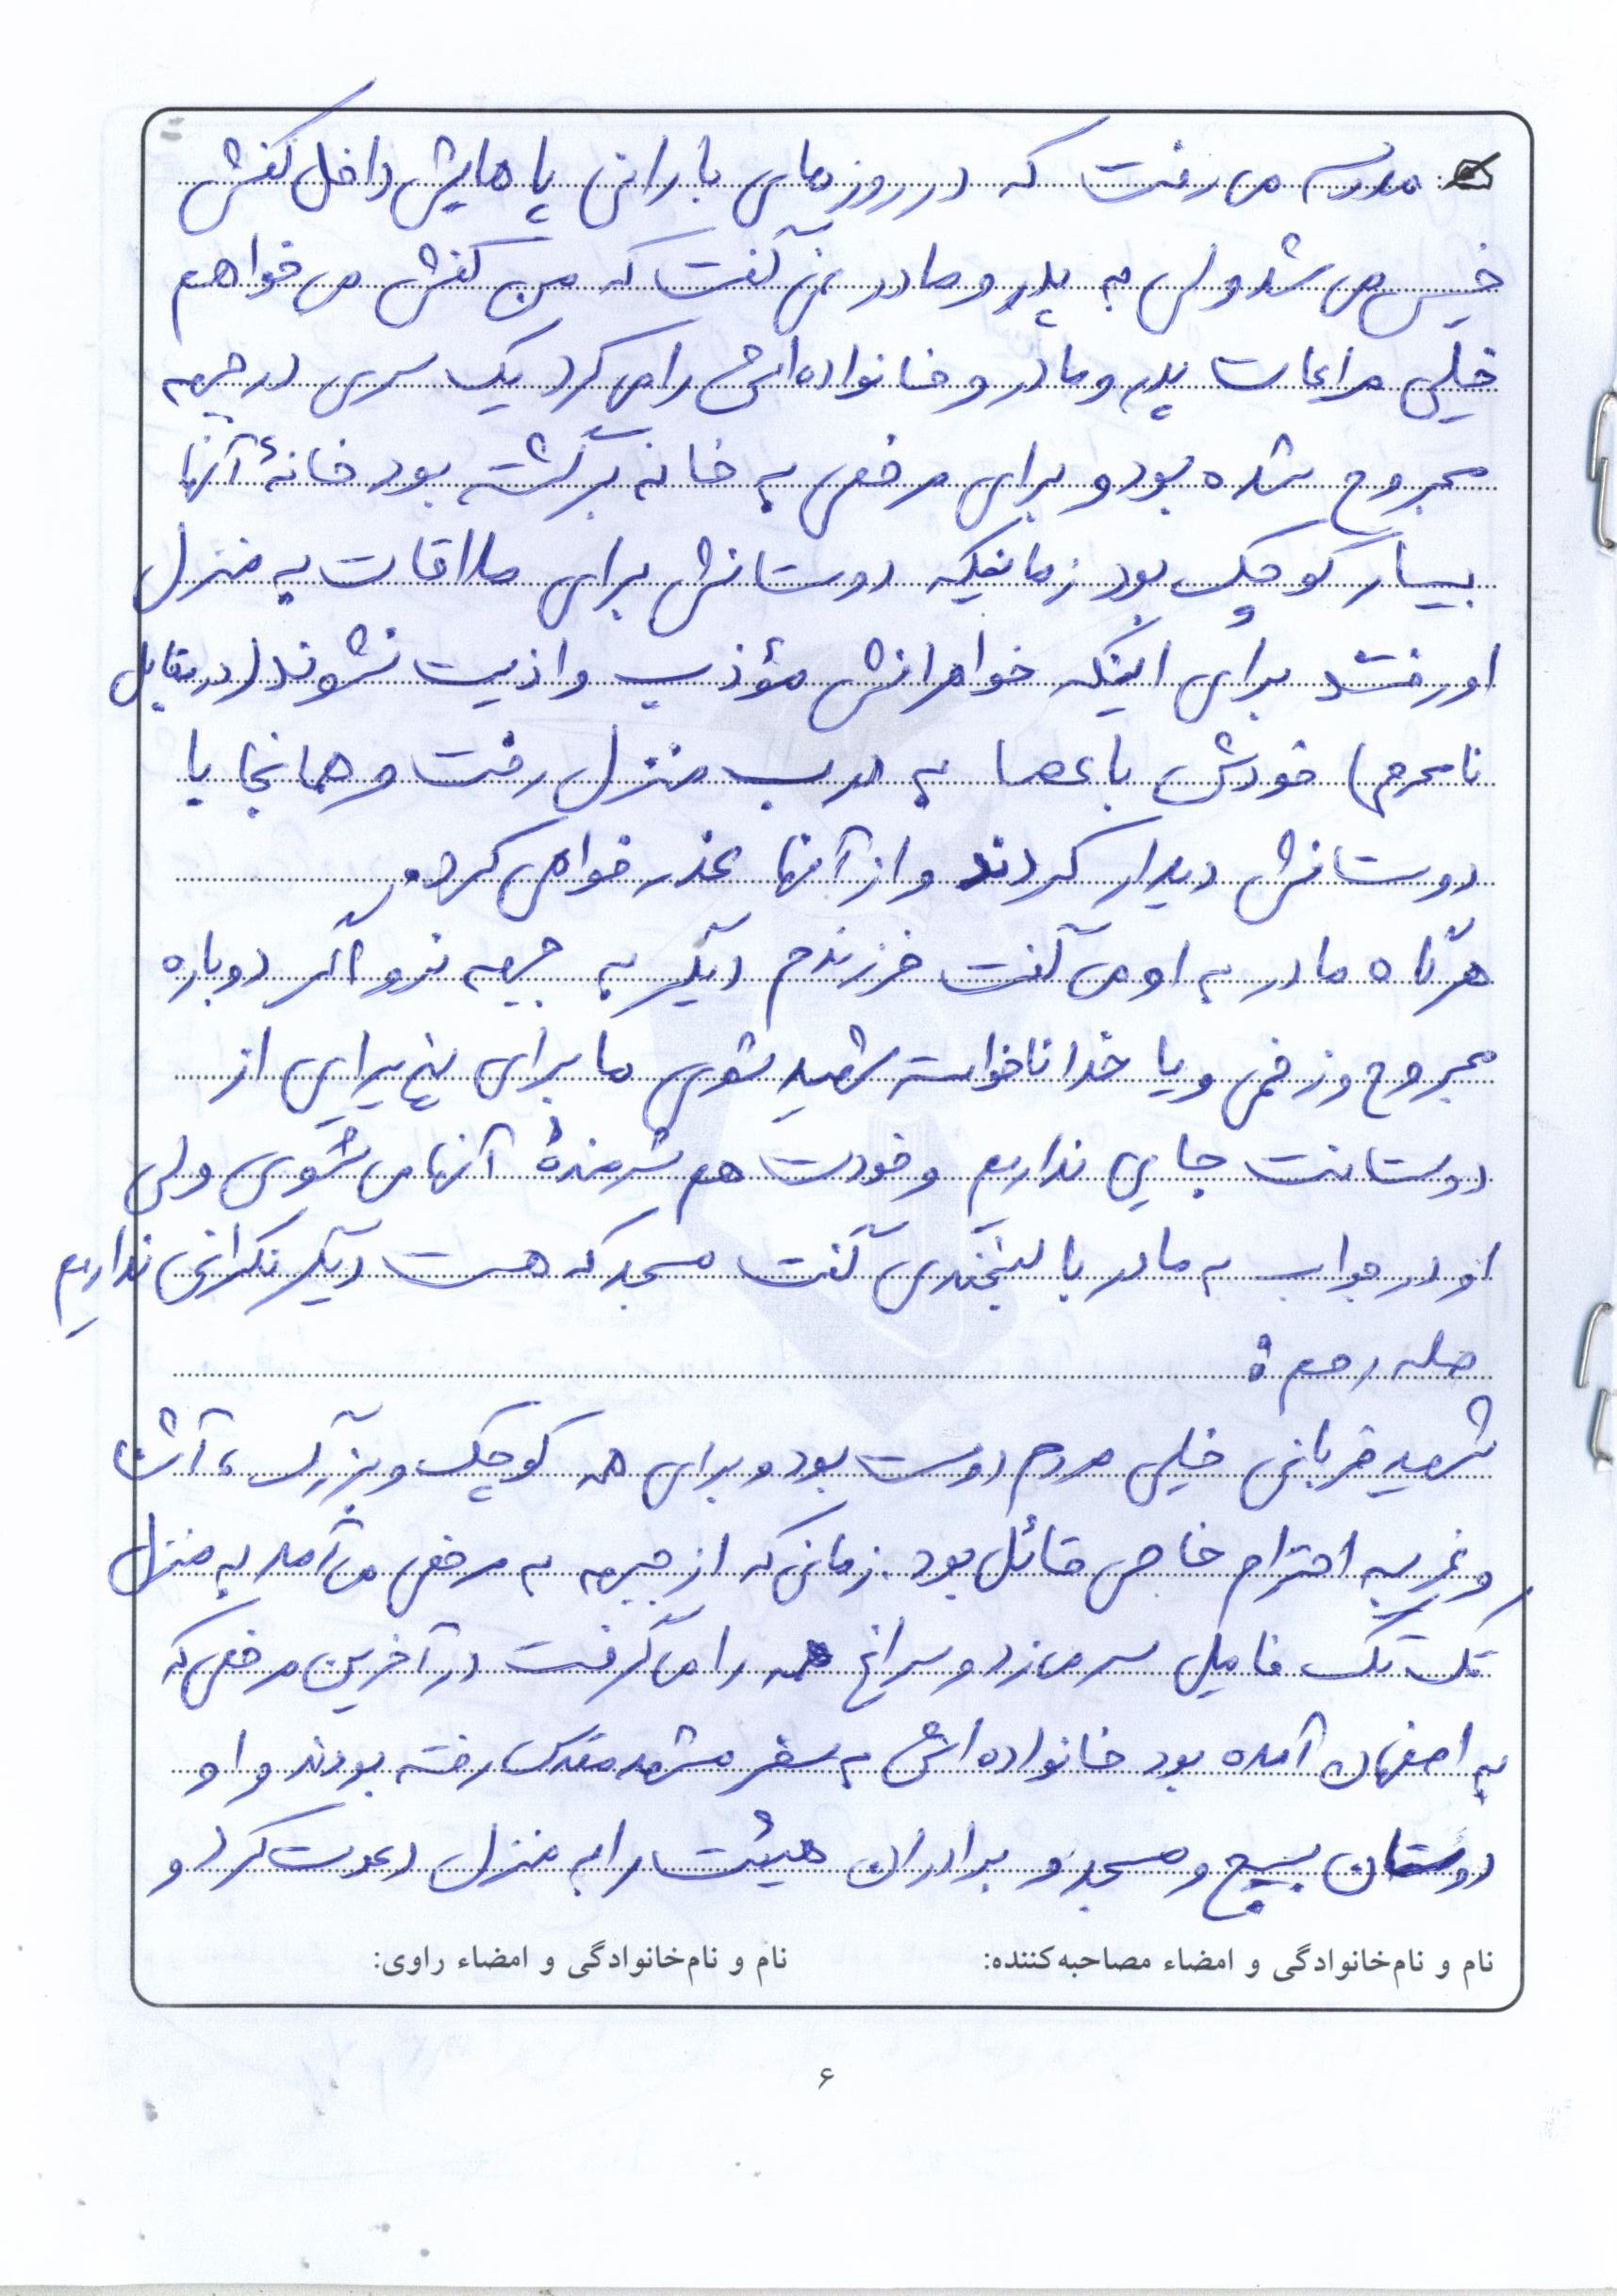 مدرسه می رفت که در روزهای بارانی پاهایش داخل کفش
خیس می شد ولی به پدر و مادر نمی گفت که من کفش می خواهم
خیلی مراعات پدر و مادر و خانواده اش را می کرد یک سری در جبهه
مجروح شده بود و برای مرخصی به خانه برگشته بود خانهٔ آنها
بسیار کوچک بود زمانیکه دوستانش برای ملاقات به منزل
او رفتند برای اینکه خواهرانش مؤذب و اذیت نشوند (در مقابل
نامحرم) خودش با عصا به درب منزل رفت و همانجا با
دوستانش دیدار کردند و از آنها عذر خواهی کرد.
هرگاه مادر به او می گفت فرزندم دیگر به جبهه نرو اگر دوباره
مجروح و زخمی و یا خدا ناخواسته شهید شوی ما برای پذیرایی از
دوستانت جایی نداریم و خودت هم شرمندهٔ آنها می شوی ولی
او در جواب به مادر با لبخندی گفت مسجد که هست دیگر نگرانی نداریم
صله رحم :
شهید قربانی خیلی مردم دوست بود و برای همه کوچک و بزرگ ، آشنا
و غریبه احترام خاصی قائل بود. زمانی که از جبهه به مرخصی می آمد به منزل
تک تک فامیل سر می زد و سراغ همه را می گرفت در آخرین مرخصی که
به اصفهان آمده بود خانواده اش به سفر مشهد مقدس رفته بودند و او
دوستان بسیج و مسجد و برادران هیئت را به منزل دعوت کرد و
نام و نام‌خانوادگی و امضاء مصاحبه‌کننده: نام و نام‌خانوادگی و امضاء راوی:
۶